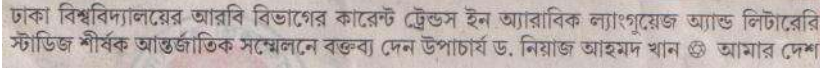 ঢাকা বিশ্ববিদ্যালয়ের আরবি বিভাগের কারেন্ট ট্রেন্ডস ইন অ্যারাবিক ল্যাংগুয়েজ অ্যান্ড লিটারেরি
স্টাডিজ শীর্ষক আন্তর্জাতিক সম্মেলনে বক্তব্য দেন উপাচার্য ড. নিয়াজ আহমদ খান আমার দেশ